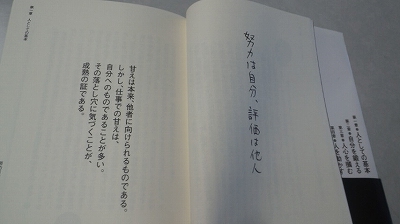 努力は自分、評価は他人
甘えは本来、他者に向けられるものである。
しかし、仕事での甘えは、
自分へのものであることが多い。
その落とし穴に気づくことが、
成熟の証である。
人としての基本
自分を鍛える
人心を掴む
人を動かす